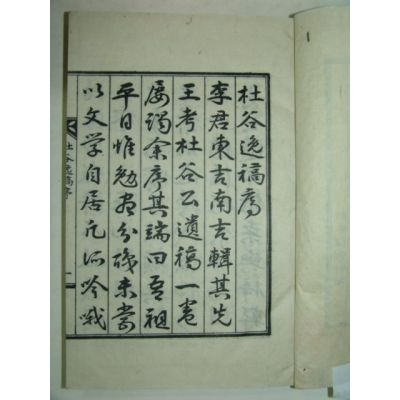 杜谷逸稿序
李君東吉南吉輯其先
王考杜谷公遺稿一卷
屬余序其端曰吾祖
平日惟勉盡分職未嘗
以文学自居凡所吟哦
杜谷逸稿序